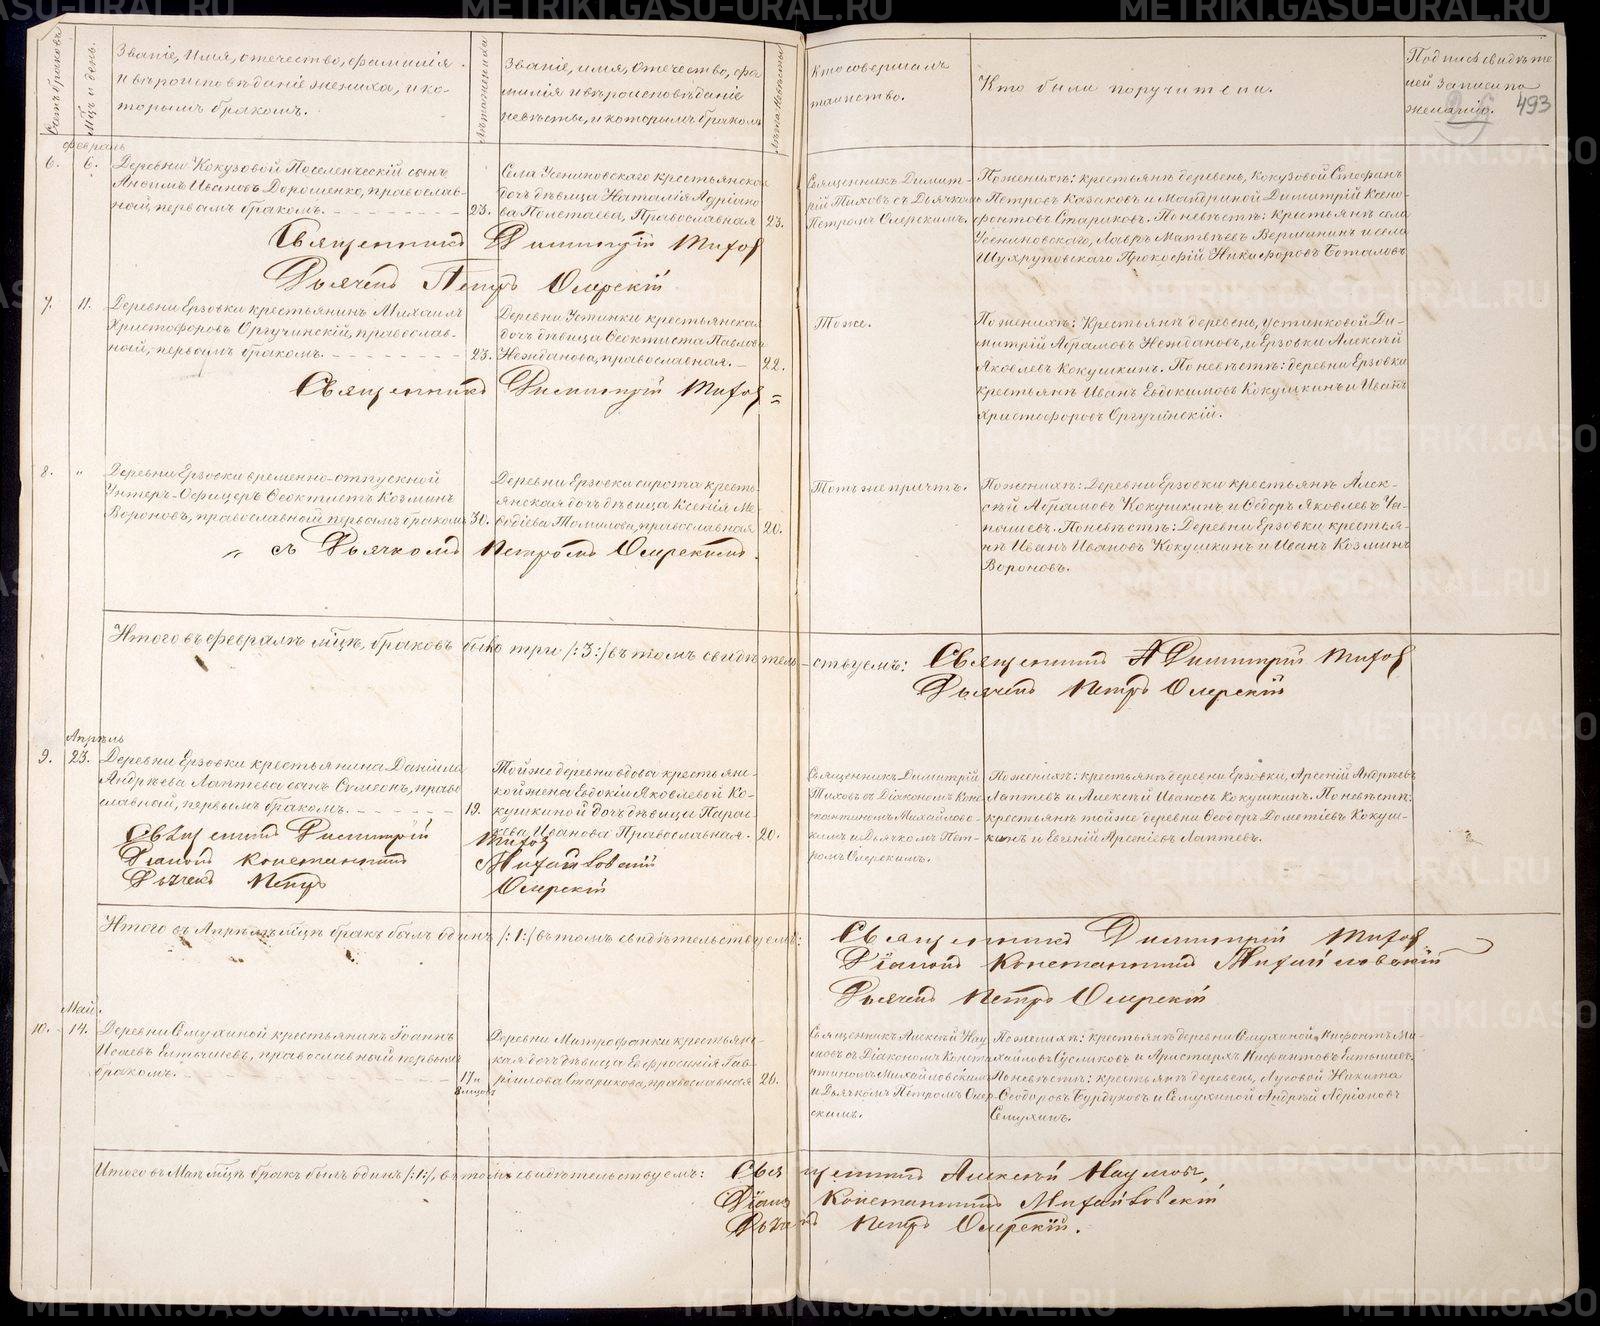 Счетъ браковъ.
Мѣц. и день.
Званіе, имя, отечество, фамилія
и вѣроисповѣданіе жениха, и ко-
торымъ бракомъ.
Лѣта жениха
Званіе, имя, отечество, фа-
милія и вѣроисповѣданіе
невѣсты, и которымъ бракомъ
Лѣта невѣсты
Кто совершалъ
таинство.
Кто были поручители.
Подпись свидѣте
лей записи по
желанію.
493
Февраль
6.
6.
Деревни Кокузовой Поселенческій сынъ
Анѳимъ Ивановъ Дорошенко, православ-
ный, первымъ бракомъ.
23.
Села Усениновскаго крестьянская
дочь дѣвица Наталія Адріано-
ва Полетаева, Православная
23.
Священникъ Димит-
рій Тиховъ съ Дьячкомъ
Петромъ Озерскимъ.
По женихѣ: крестьянѣ деревень, Кокузовой Стефанъ
Петровъ Казаковъ и Мандриной Димитрій Ксено-
фонтовъ Стариковъ. По невѣстѣ: Крестьянѣ села
Усениновскаго, Лавръ Матвѣевъ Вершининъ и села
Шухруповскаго Прокопій Никифоровъ Боталовъ
Священникъ Димитрій Тиховъ
Дьячекъ Петръ Озерскій
7.
11.
Деревни Ерзовки крестьянинъ Михаилъ
Христофоровъ Оргучинскій, православ-
ный, первымъ бракомъ.
23.
Деревни Устинки крестьянская
дочь дѣвица Ѳеоктиста Павлова
Нежданова, православная.
22.
Тоже.
По женихѣ: Крестьянѣ деревень, Устинковой Ди-
митрій Абрамовъ Неждановъ, и Ерзовки Алексѣй
Яковлевъ Кокушкинъ. По невѣстѣ: деревни Ерзовки
крестьянѣ Иванъ Евдокимовъ Кокушкинъ и Иванъ
Христофоровъ Оргучинскій.
Священникъ Димитрій Тиховъ =
8.
"
Деревни Ерзовки временно-отпускной
Унтеръ-Офицеръ Ѳеоктистъ Козминъ
Вороновъ, православный первымъ бракомъ
30.
Деревни Ерзовки сирота кресть-
янская дочь дѣвица Ксенія Ме-
ѳодіева Томилова, православная
20.
Тотъ же причтъ.
По женихѣ: Деревни Ерзовки крестьянѣ Алек-
сѣй Абрамовъ Кокушкинъ и Ѳедоръ Яковлевъ Ча-
пышевъ. По невѣстѣ: Деревни Ерзовки крестья-
нѣ Иванъ Ивановъ Кокушкинъ и Иванъ Козминъ
Вороновъ.
" съ Дьячкомъ Петромъ Озерскимъ.
Итого въ февралѣ мѣцѣ, браковъ было три /:3:/ въ томъ свидѣтель-ствуемъ: Священникъ Димитрій Тиховъ
Дьячекъ Петръ Озерскій
Апрѣль
9.
23.
Деревни Ерзовки крестьянина Даніила
Андрѣева Лаптева сынъ Симеонъ, право
славный, первымъ бракомъ.
19.
Той же деревни вдова крестьянс-
кой жена Евдокіи Яковлевой Ко-
кушкиной дочь дѣвица Парас-
кева Иванова Православная.
20.
Священникъ Димитрій
Тиховъ съ Діакономъ Конс
тантиномъ Михайловс-
кимъ и Дьячкомъ Пет-
ромъ Озерскимъ.
По женихѣ: крестьянѣ деревни Ерзовки, Арсеній Андрѣевъ
Лаптевъ и Алексѣй Ивановъ Кокушкинъ. По невѣстѣ:
крестьянѣ той же деревни Ѳеодоръ Дометіевъ Кокуш-
кинъ и Евгеній Арсеніевъ Лаптевъ.
Священникъ Димитрій Тиховъ
Діаконъ Константинъ Михайловскій
Дьячекъ Петръ Озерскій
Итого въ Апрѣлѣ мѣцѣ бракъ былъ одинъ /:1:/ въ томъ свидѣтельствуемъ: Священникъ Димитрій Тиховъ
Діаконъ Константинъ Михайловскій
Дьячекъ Петръ Озерскій
Май.
10.
14.
Деревни Семухиной крестьянинъ Іоаннъ
Исаевъ Елтышевъ, православный первымъ
бракомъ.
17 и
8 мѣцовъ
Деревни Митрофанки крестьянс-
кая дочь дѣвица Евфросинія Гав-
ріилова Старикова, православная
26.
Священникъ Алексѣй Нау
мовъ съ Діакономъ Конста
нтиномъ Михайловскимъ
и Дьячкомъ Петромъ Озер-
скимъ.
По женихѣ: крестьянѣ деревни Семухиной, Нифонтъ Ми-
хайловъ Сусликовъ и Аристархъ Нифантовъ Елтышевъ.
По невѣстѣ: крестьянѣ деревень, Луговой Никита
Ѳеодоровъ Бурдуковъ и Семухиной Андрѣй Адріановъ
Семухинъ.
Итого въ Маѣ мѣцѣ бракъ былъ одинъ /:1:/, въ томъ свидѣтельствуемъ: Священникъ Алексѣй Наумовъ,
Діаконъ Константинъ Михайловскій
Дьячекъ Петръ Озерскій.
METRIKI.GASO-URAL.RU